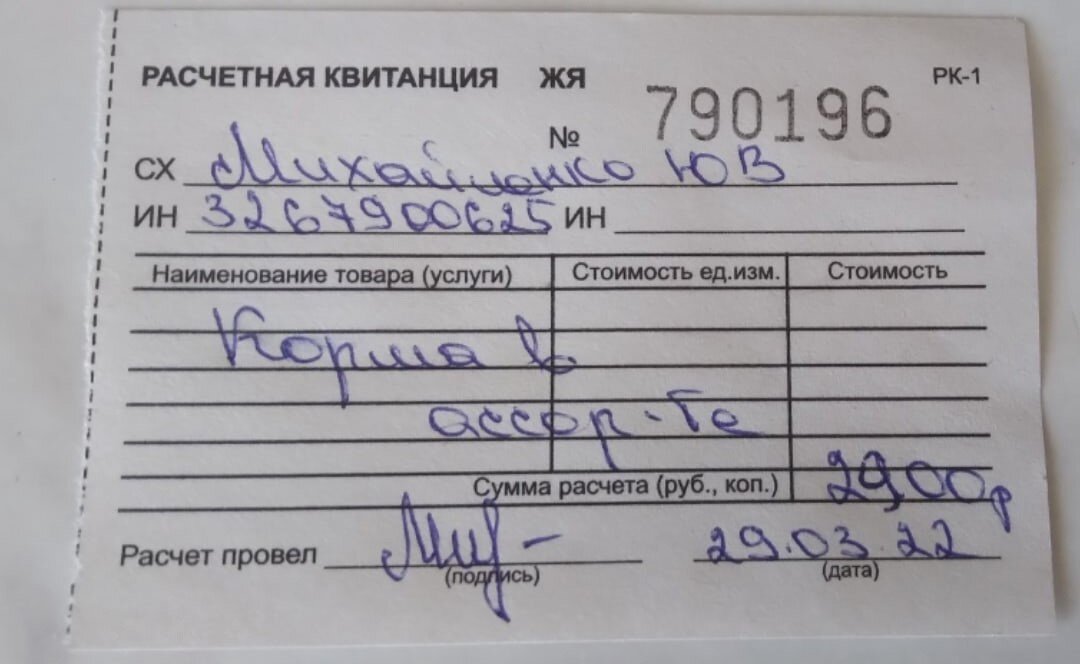 РАСЧЕТНАЯ КВИТАНЦИЯ ЖЯ РК-1
№ 790196
СХ Михайленко ЮВ
ИН 3267900625 ИН
Наименование товара (услуги) Стоимость ед.изм. Стоимость
Корма в
ассор-те
Сумма расчета (руб., коп.) 29,00р
Расчет провел 29.03.22
(подпись) (дата)